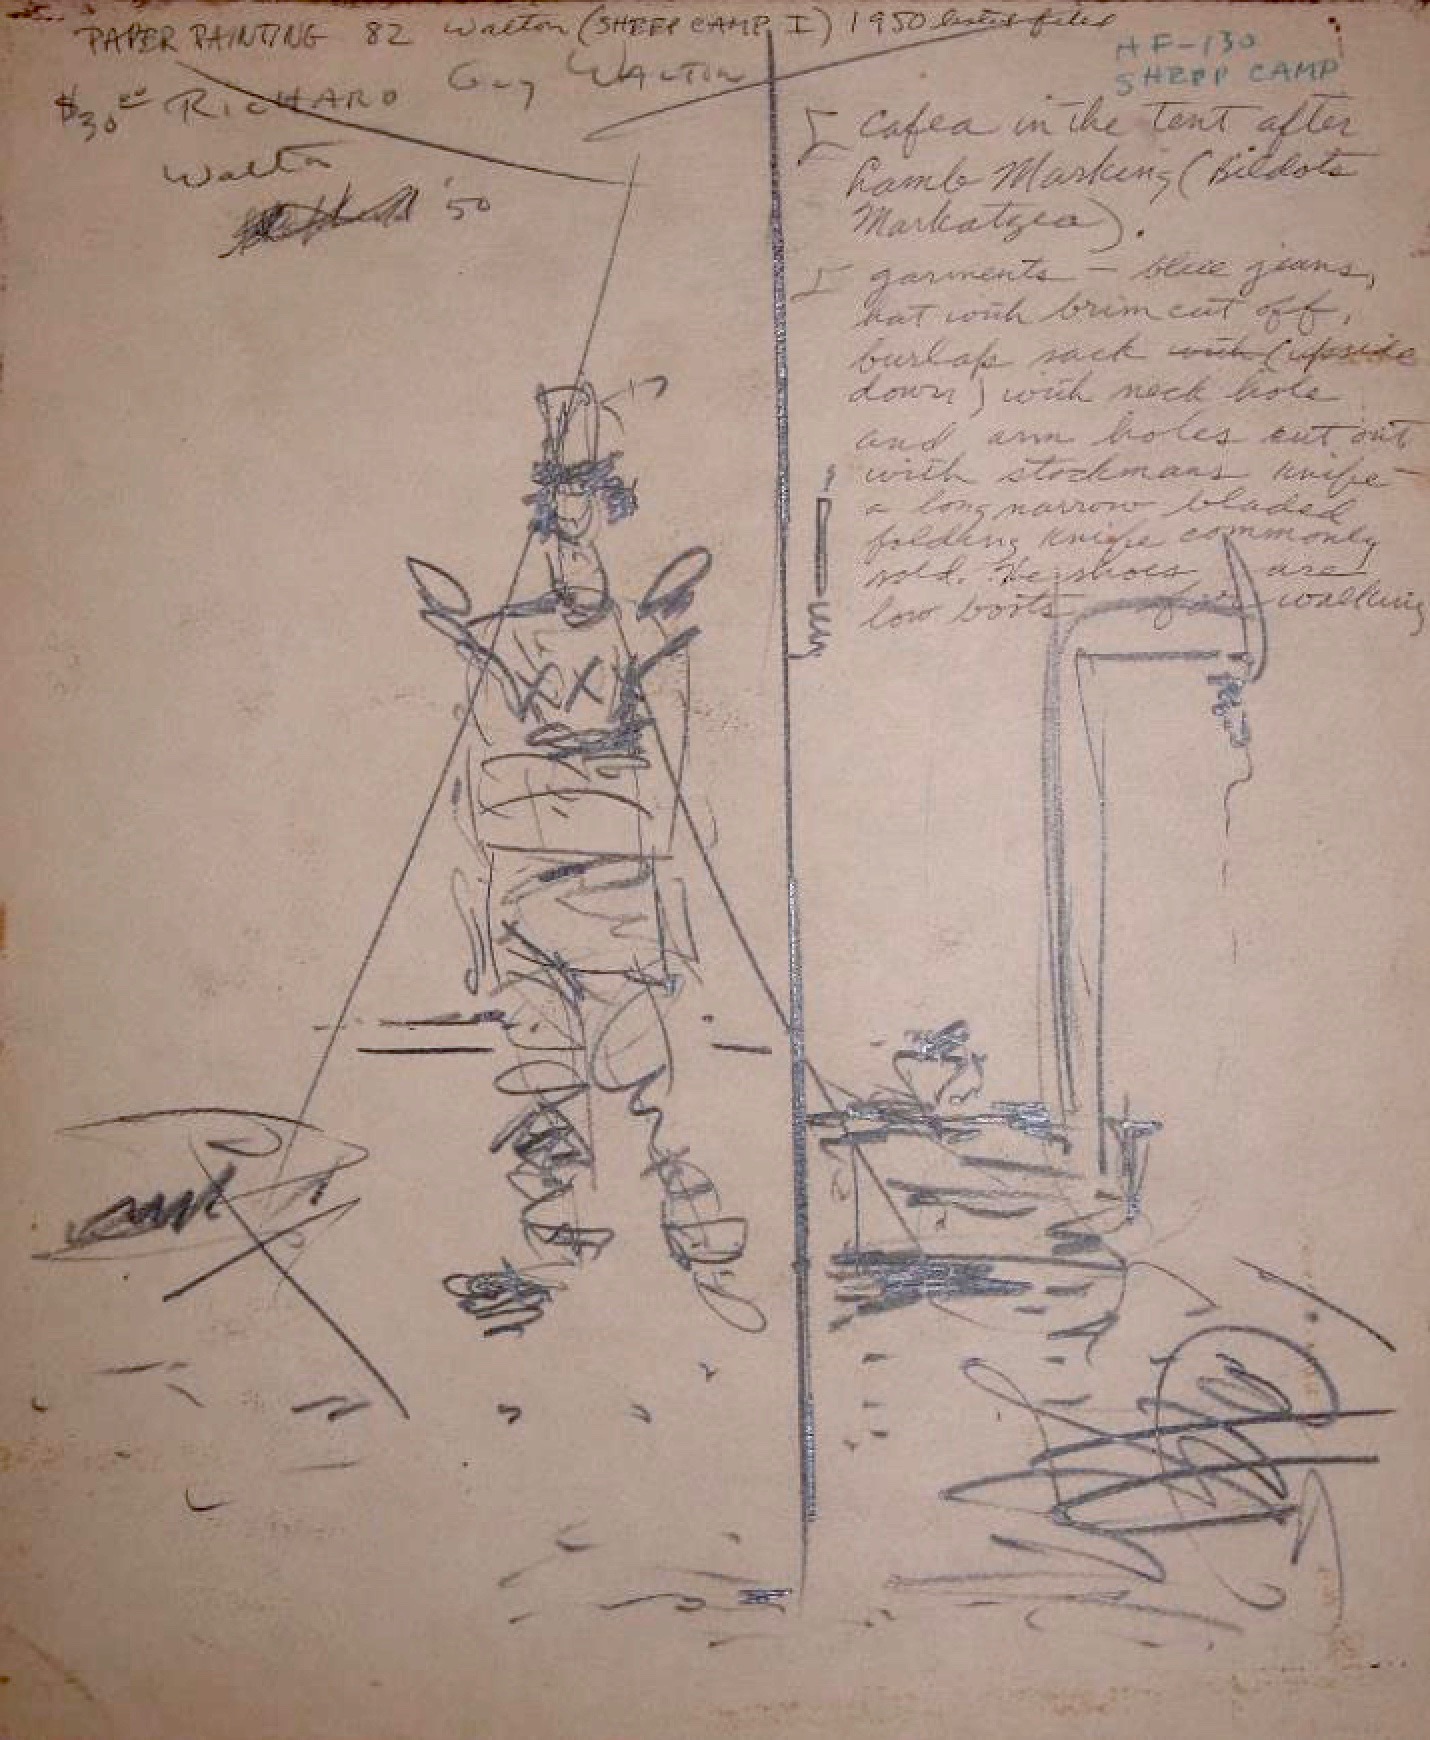 PAPER PAINTING 82 Walton (SHEEP CAMP I) 1950 listed-filed
HF-130
SHEEP CAMP
$30.00 RICHARD Guy WALTON
Walton
'50
Cafea in the tent after
Lamb Marking (Bildots
Markatzea).
garments - blue jeans,
hat with brim cut off,
burlap sack with (upside
down) with neck hole
and arm holes cut out
with stockmans knife -
a long narrow bladed
folding knife commonly
sold. The shoes are
low boots for walking
XXX